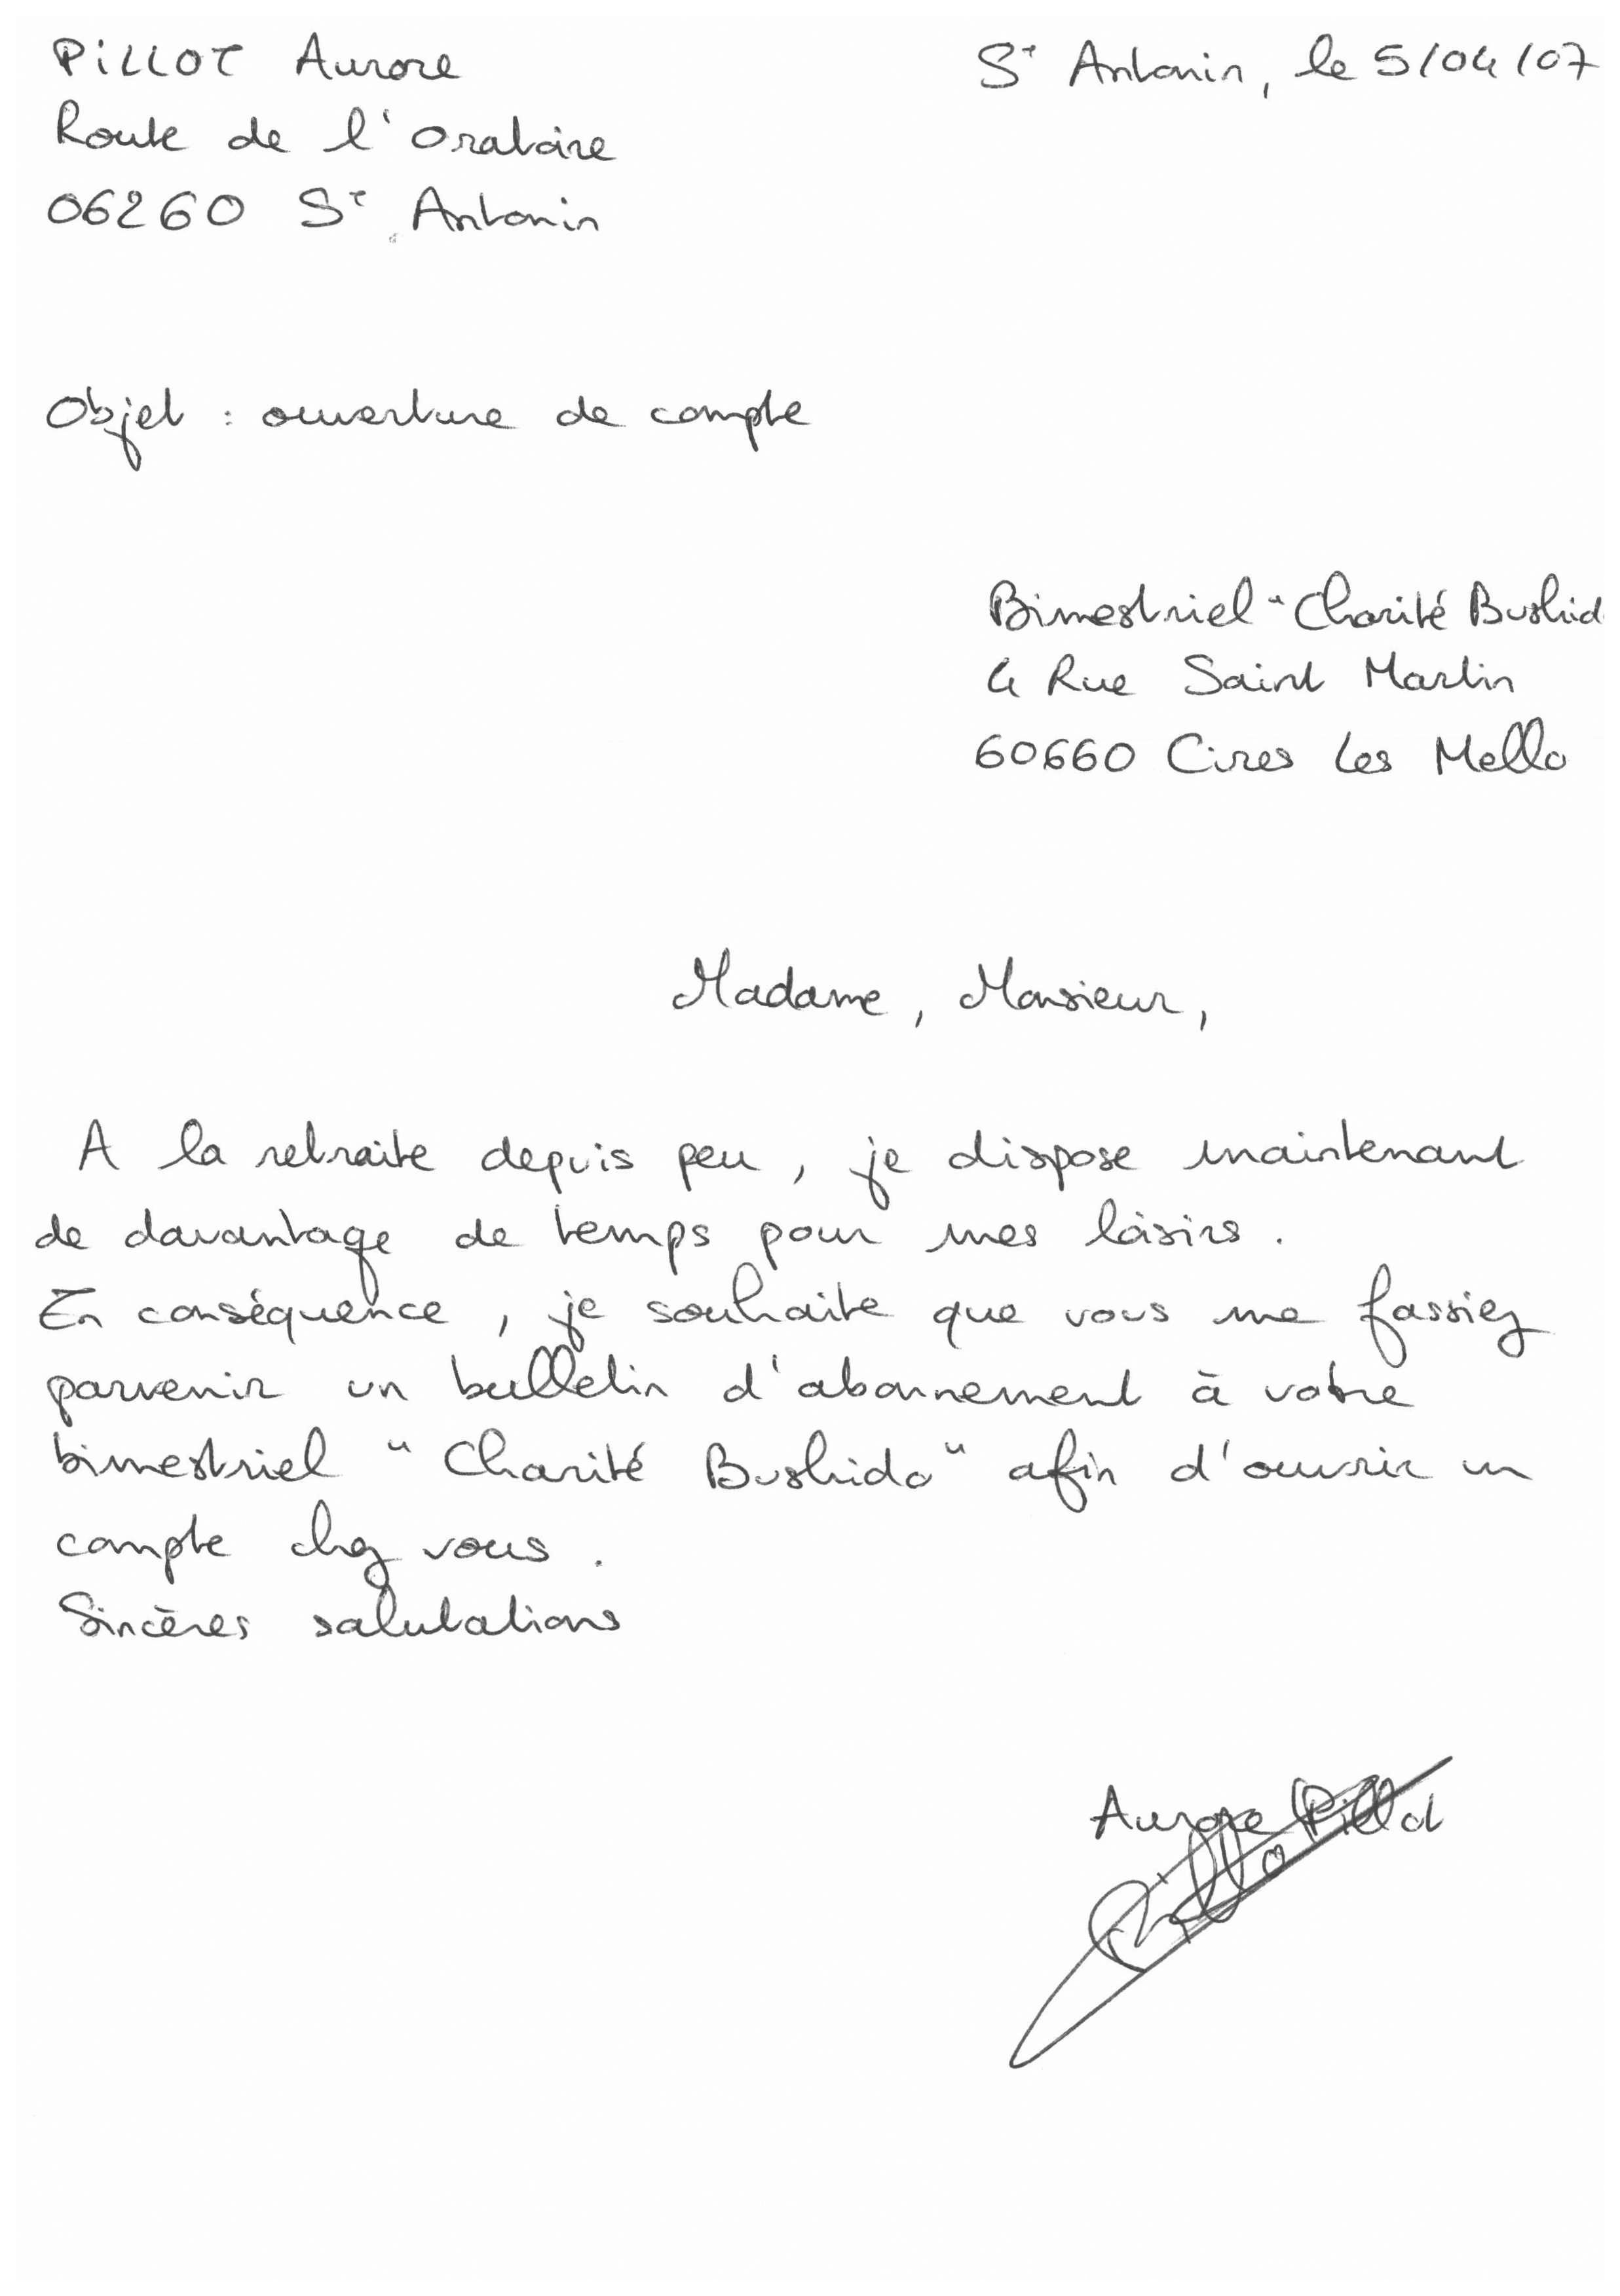 PILLOT Aurore
St Antonin, le 5/04/07
Route de l'Oratoire
06260 St Antonin
Objet : ouverture de compte
Bimestriel "Charité Bushid
4 Rue Saint Martin
60660 Cires Les Mello
Madame, Monsieur,
A la retraite depuis peu, je dispose maintenant
de davantage de temps pour mes loisirs.
En conséquence, je souhaite que vous me fassiez
parvenir un bulletin d'abonnement à votre
bimestriel "Charité Bushido" afin d'ouvrir un
compte chez vous.
Sincères salutations
Aurore Pillot
Pillo